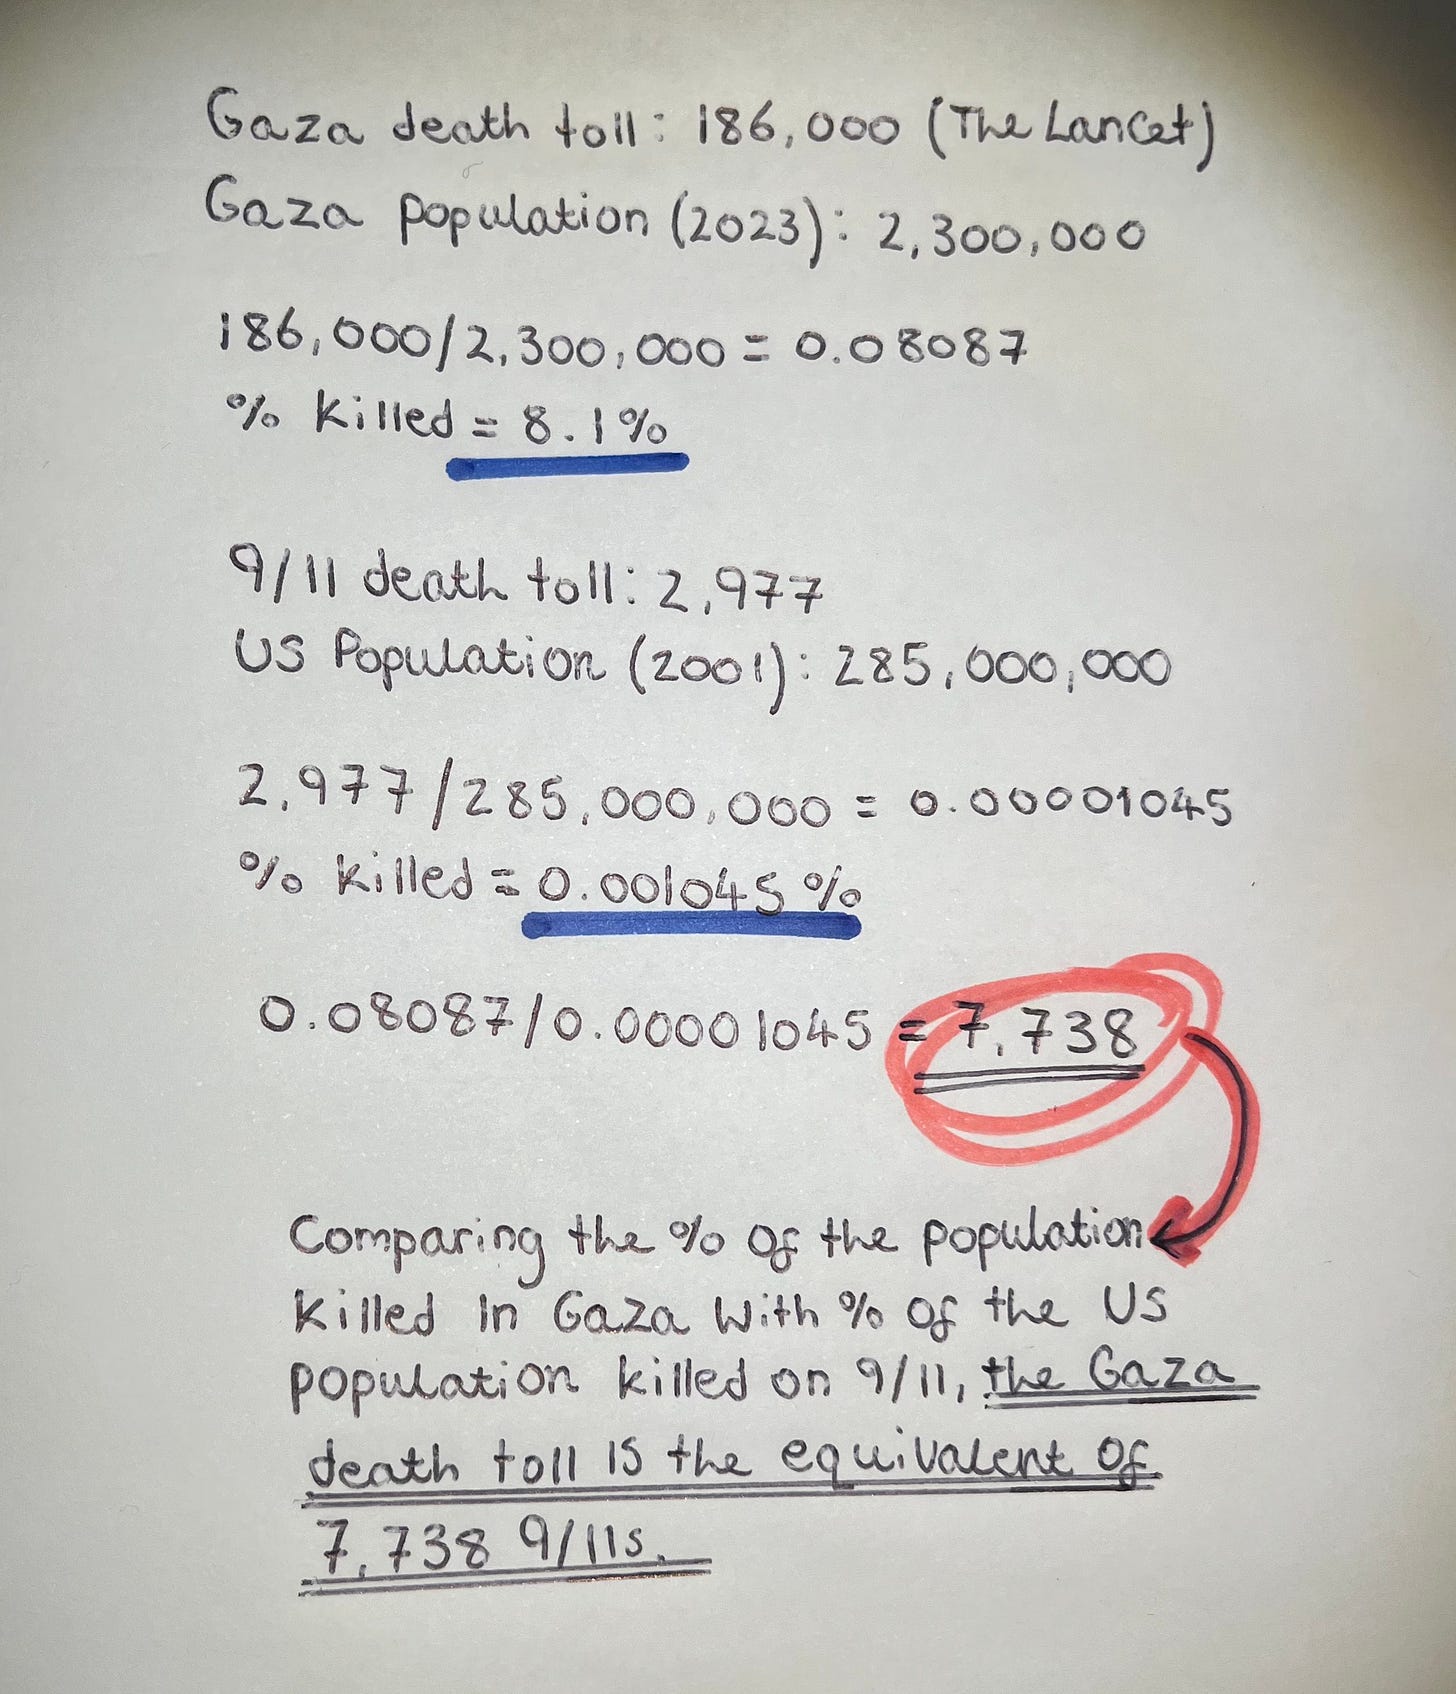 Gaza death toll: 186,000 (The Lancet)
Gaza population (2023): 2,300,000
186,000/2,300,000 = 0.08087
% killed = 8.1%
9/11 death toll: 2,977
US Population (2001): 285,000,000
2,977/285,000,000 = 0.00001045
% killed = 0.001045%
0.08087/0.00001045 = 7,738
Comparing the % of the population
killed in Gaza with % of the US
population killed on 9/11, the Gaza
death toll is the equivalent of
7,738 9/11s.